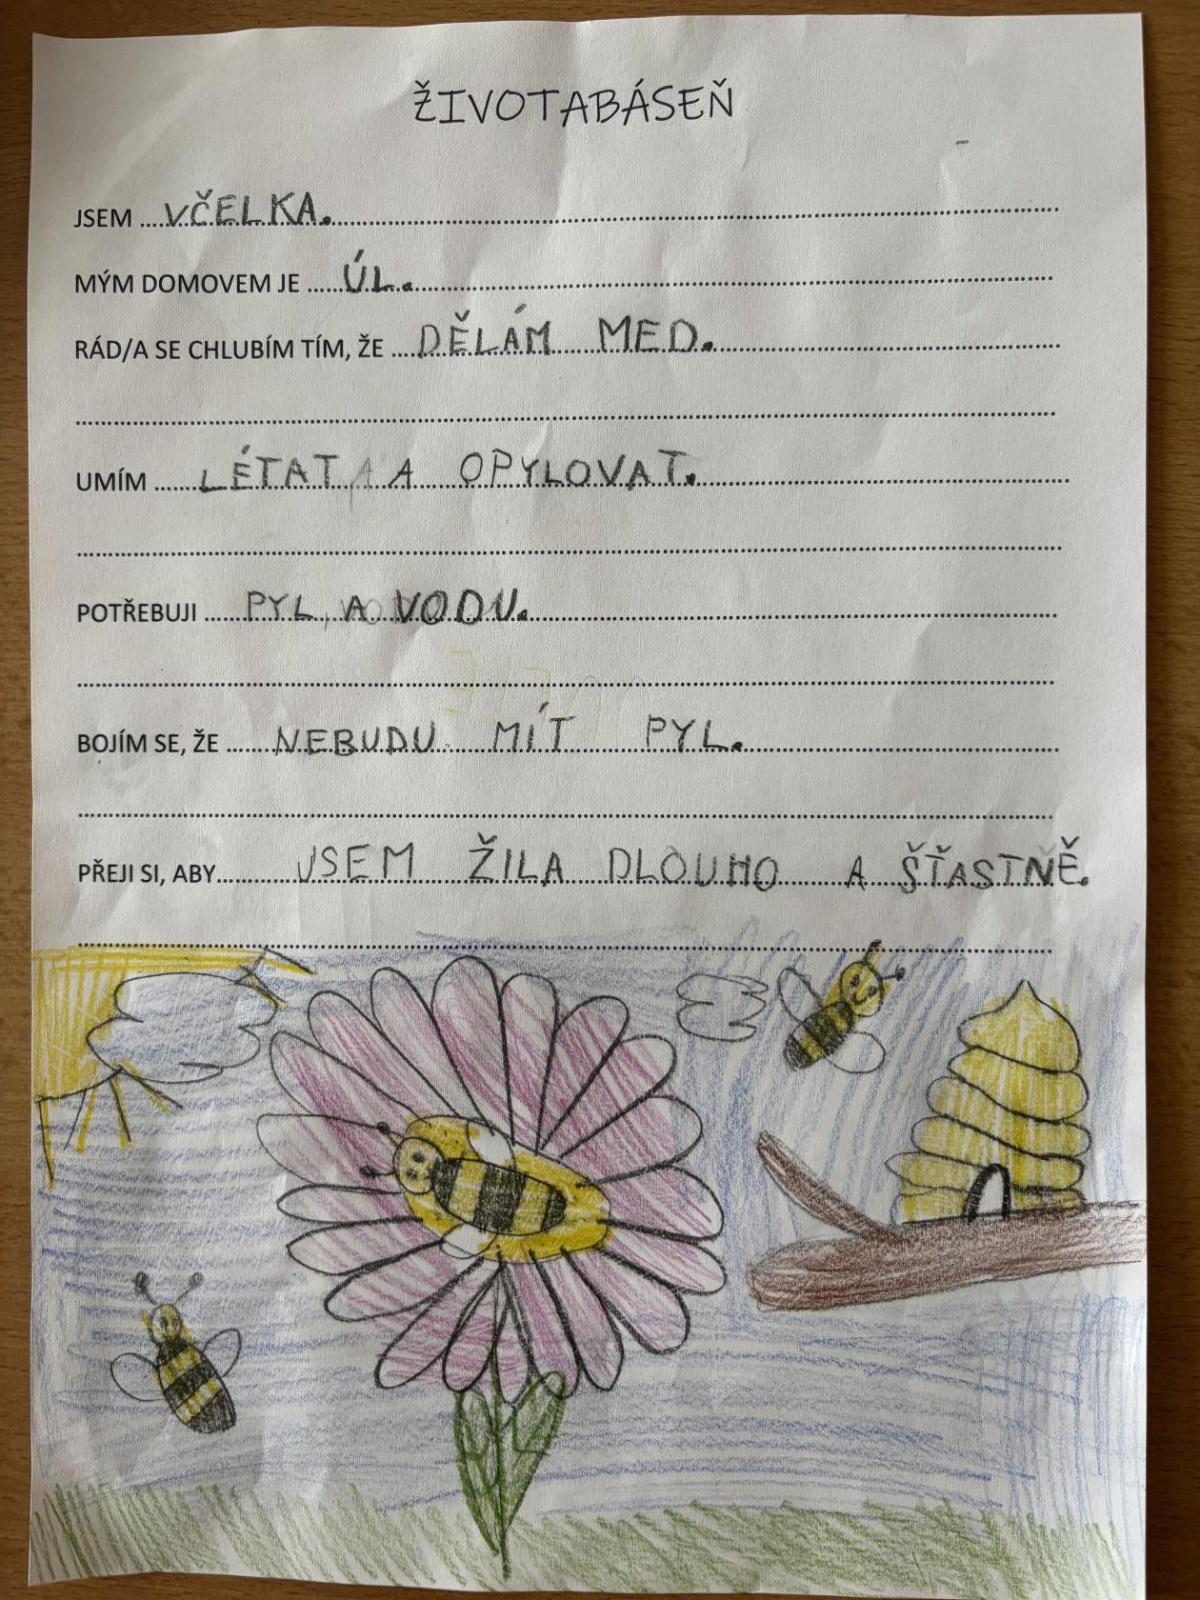 ŽIVOTABÁSEŇ
JSEM VČELKA.
MÝM DOMOVEM JE ÚL.
RÁD/A SE CHLUBÍM TÍM, ŽE DĚLÁM MED.
UMÍM LÉTAT A OPYLOVAT.
POTŘEBUJI PYL A VODU.
BOJÍM SE, ŽE NEBUDU MÍT PYL.
PŘEJI SI, ABY JSEM ŽILA DLOUHO A ŠŤASTNĚ.